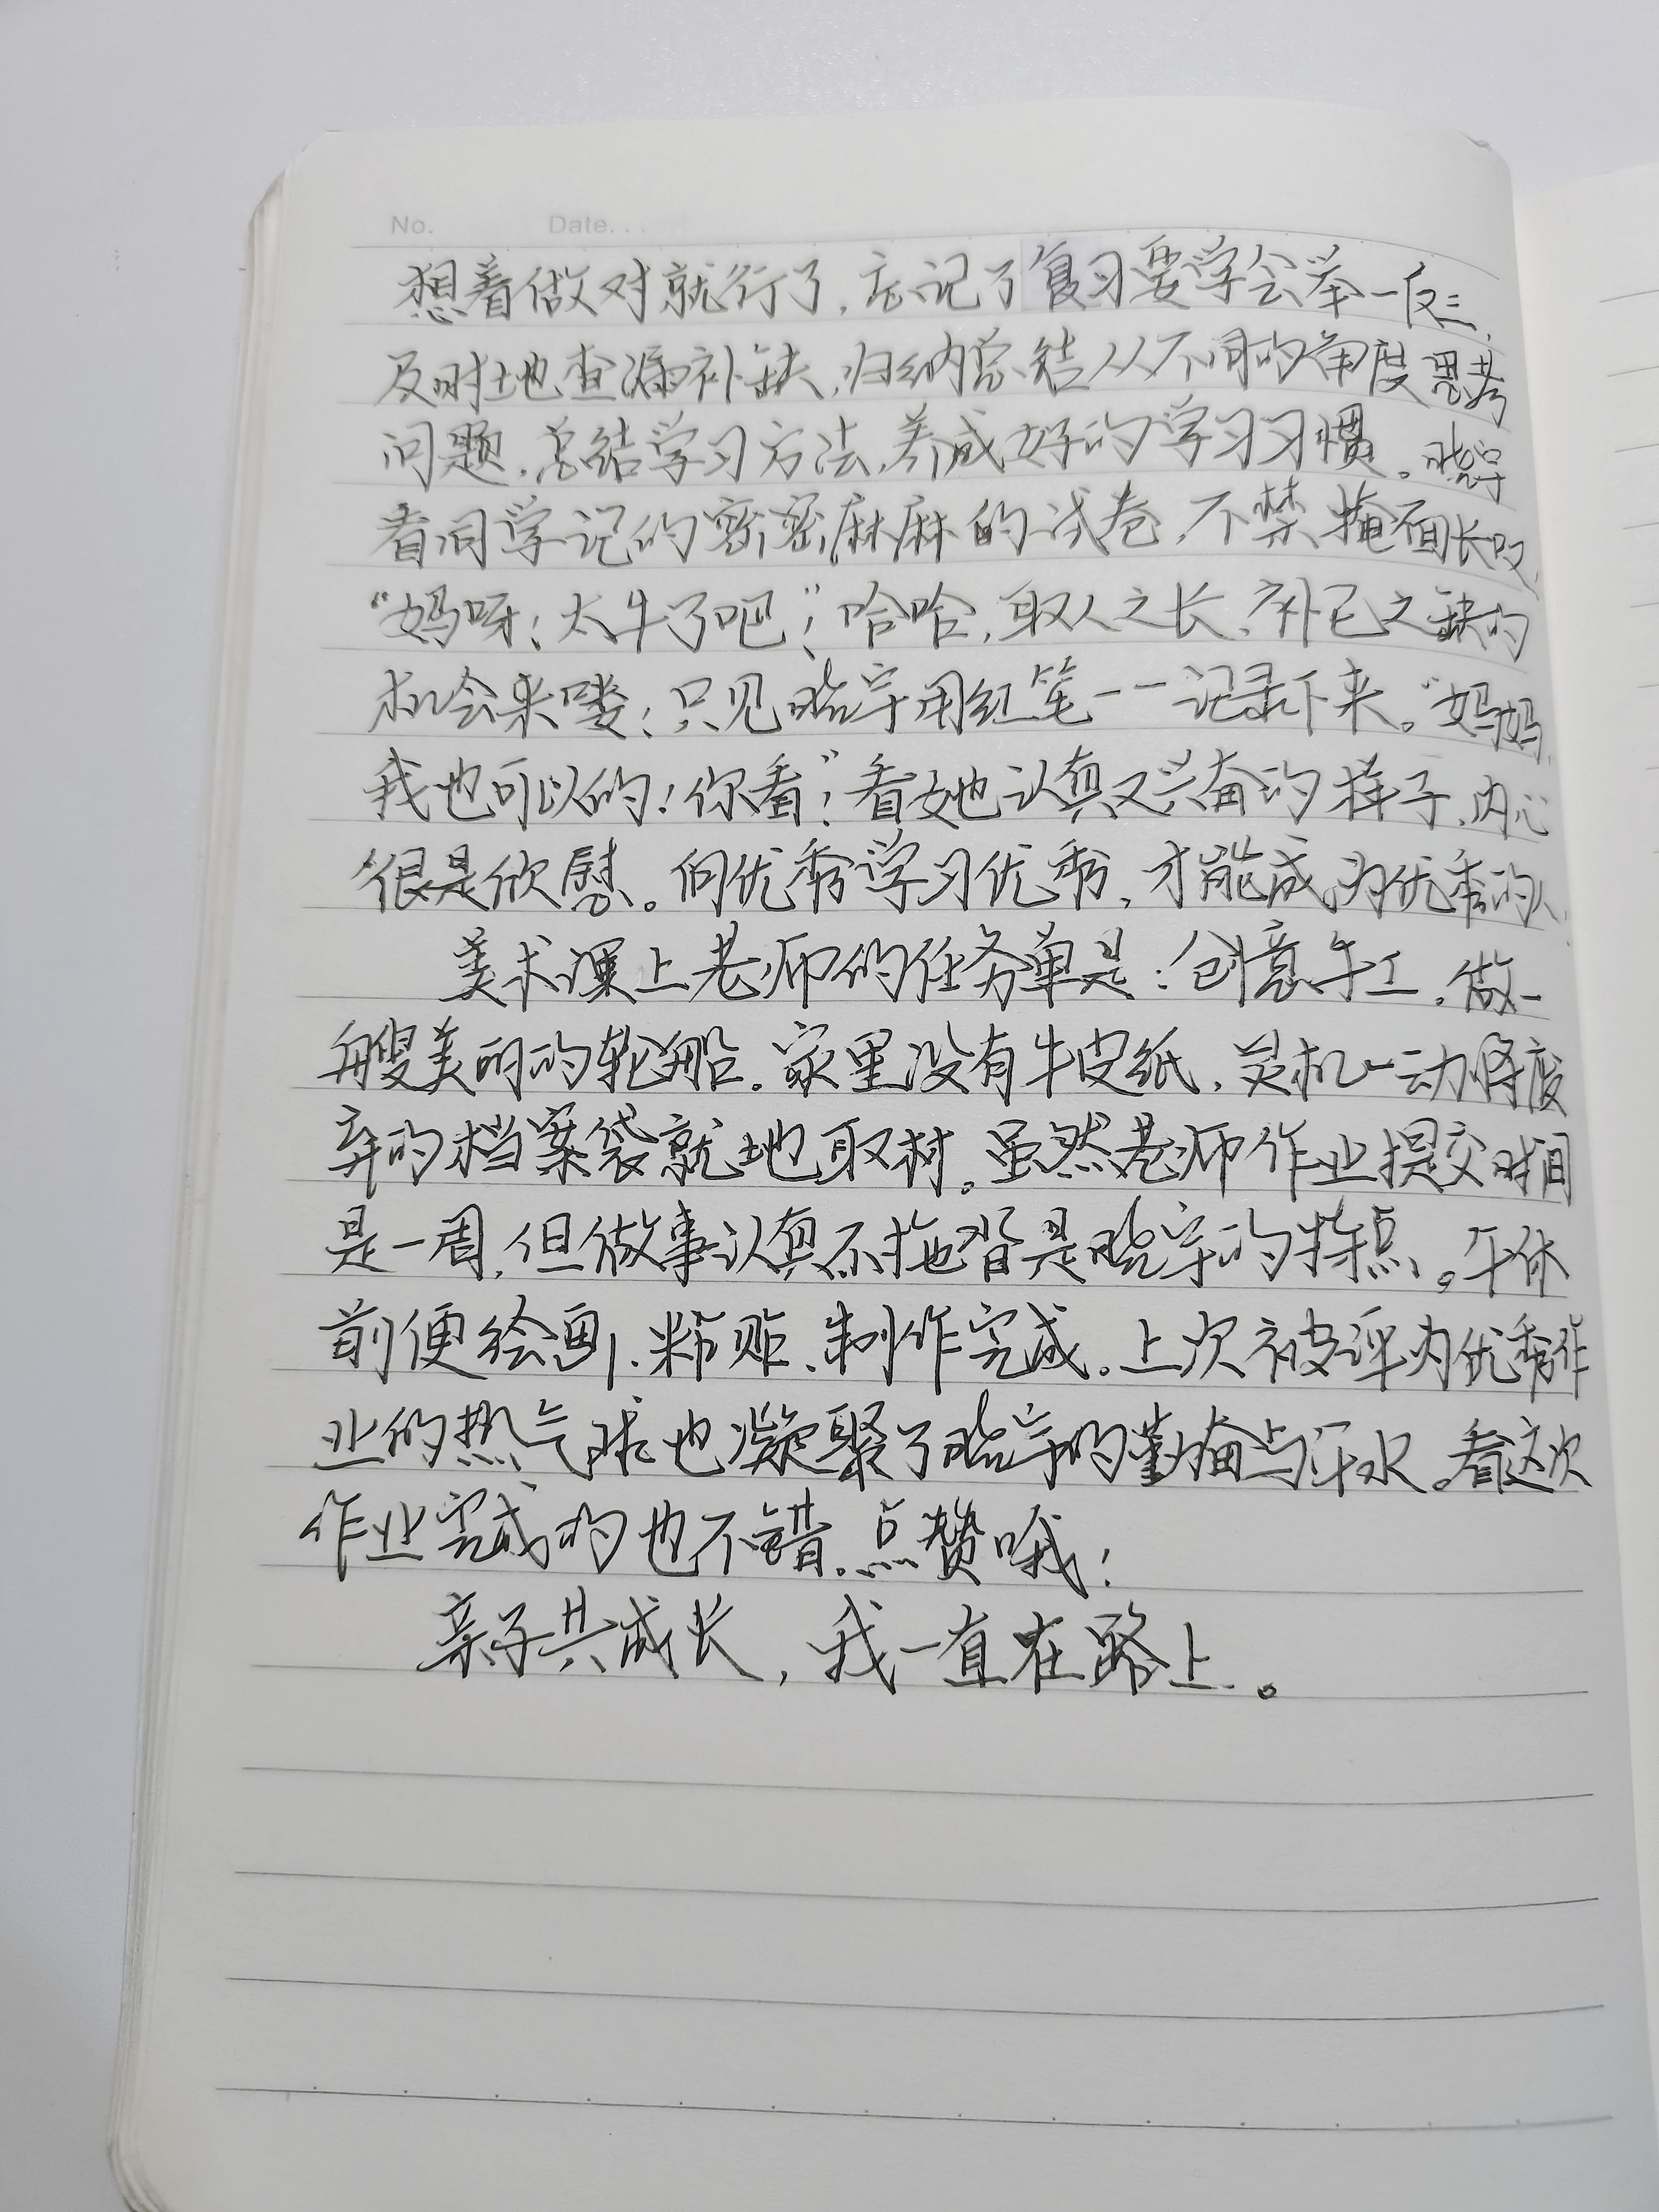 No. Date. . .
想着做对就行了，忘记了复习要学会举一反三，
及时地查漏补缺，归纳总结从不同的角度思考
问题，总结学习方法，养成好的学习习惯。晓宇
看同学记的密密麻麻的试卷，不禁掩面长叹，
“妈呀！太牛了吧”！哈哈，取人之长，补己之缺的
机会来喽！只见晓宇用红笔一一记录下来。“妈妈，
我也可以的！你看”！看她认真又兴奋的样子，内心
很是欣慰。向优秀学习优秀，才能成为优秀的人。
美术课上老师的任务单是：创意手工，做一
艘美丽的轮船。家里没有牛皮纸，灵机一动将废
弃的档案袋就地取材。虽然老师作业提交时间
是一周，但做事认真不拖沓是晓宇的特点。午休
前便绘画、粘贴、制作完成。上次被评为优秀作
业的热气球也凝聚了晓宇的勤奋与汗水。看这次
作业完成的也不错。点赞哦！
亲子共成长，我一直在路上。